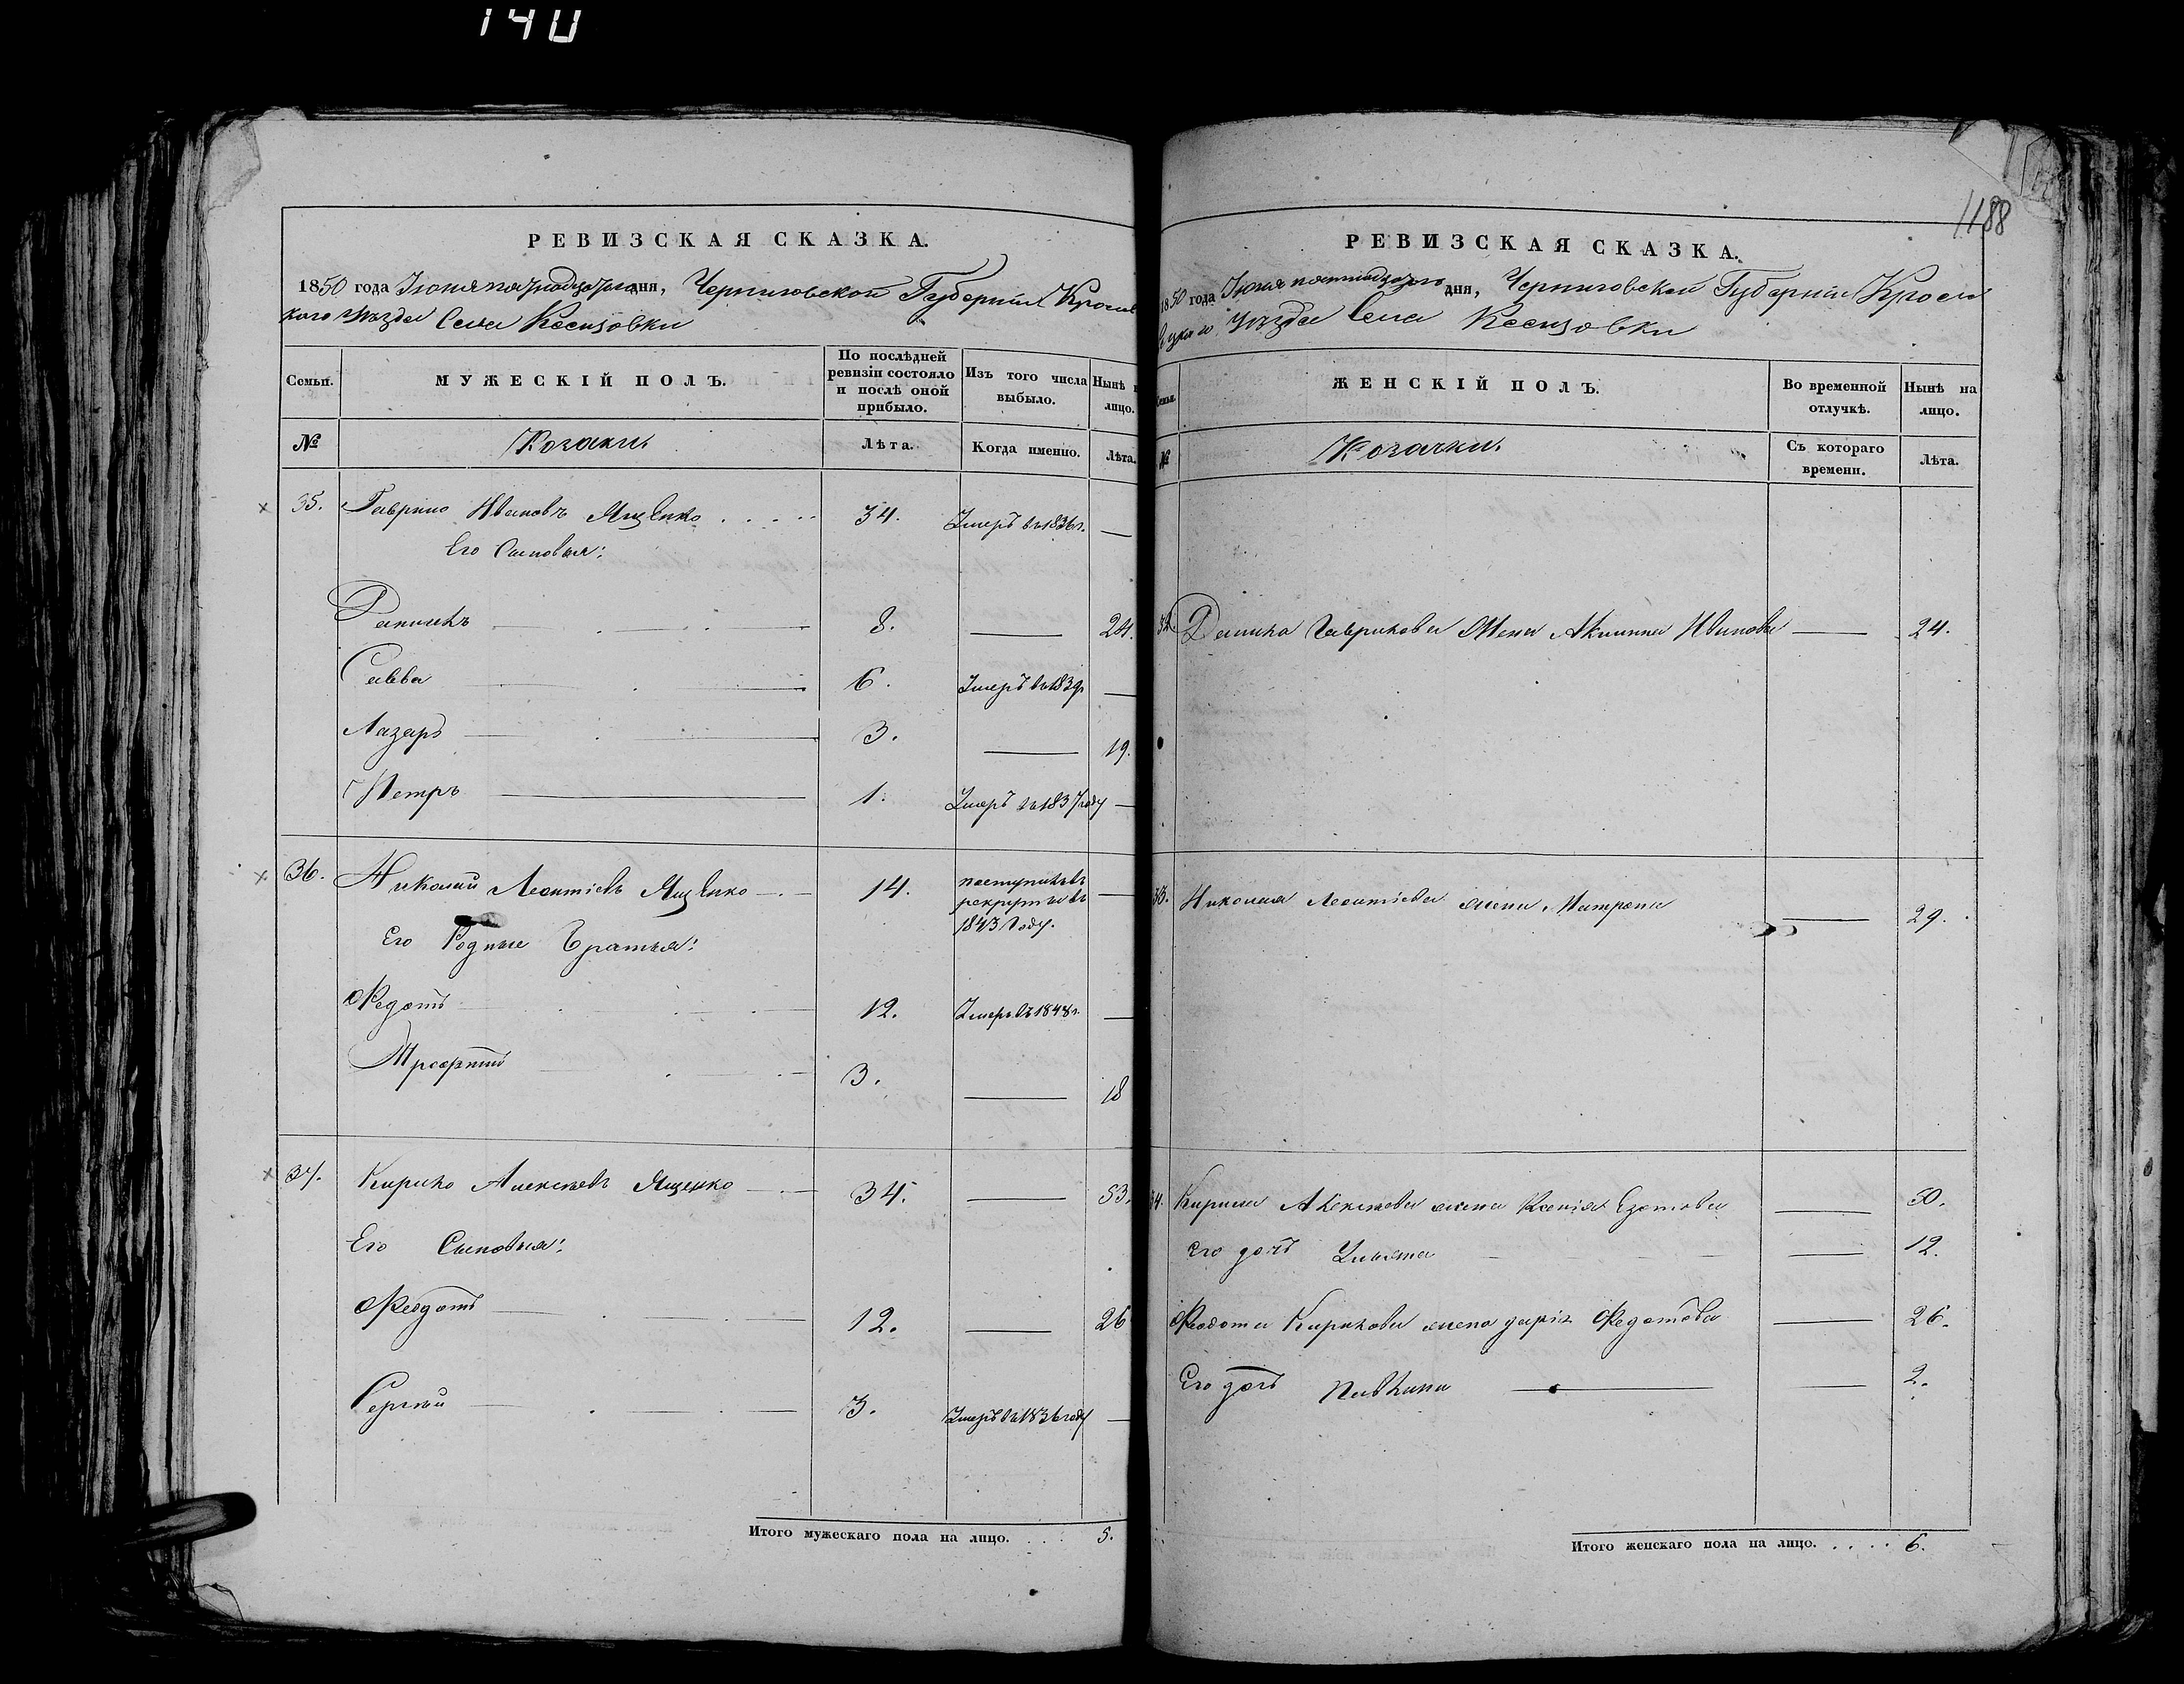 140
РЕВИЗСКАЯ СКАЗКА.
1850 года Іюня пятнадцатого дня, Черниговской Губерніи Кролев
кого уѣзда Села Ксензовки
Семьи.
МУЖЕСКІЙ ПОЛЪ.
По послѣдней ревизіи состояло и послѣ оной прибыло.
Изъ того числа выбыло.
Нынѣ
лицо.
№
Козаки.
Лѣта.
Когда именно.
Лѣта.
35. Гаврило Ивановъ Ященко 34. Умеръ въ 1836 г. —
Его Сыновья:
Данилъ 8. — 24.
Савва 6. Умеръ въ 1839
Лазарь 3. — 19.
Петръ 1. Умеръ въ 1837 году —
36. Николай Леонтіевъ Ященко 14. поступилъ въ рекруты въ 1843 году. —
Его Родные Братья:
Федотъ 12. Умеръ въ 1848 г. —
Трофимъ 3. — 18
37. Кирило Алексѣевъ Ященко 34. — 53.
Его Сыновья:
Феодотъ 12. — 26
Сергѣй 3. Умеръ въ 1836 году —
Итого мужескаго пола на лицо. . . . 5.
1188
РЕВИЗСКАЯ СКАЗКА.
1850 года Іюня пятнадцатого дня, Черниговской Губерніи Кролевецкаго Уѣзда Села Ксензовки
Семьи.
ЖЕНСКІЙ ПОЛЪ.
Во временной отлучкѣ.
Нынѣ на лицо.
№
Козачки.
Съ котораго времени.
Лѣта.
Данила Гаврилова Жена Акилина Иванова — 24.
Николая Леонтіева жена Матрона — 29.
Кирила Алексѣева жена Ксенія — 50.
Его дочь Ульяна — 12.
Феодота Кирилова жена Дарія Федотова — 26.
Его дочь — 2.
Итого женскаго пола на лицо. . . . . 6.